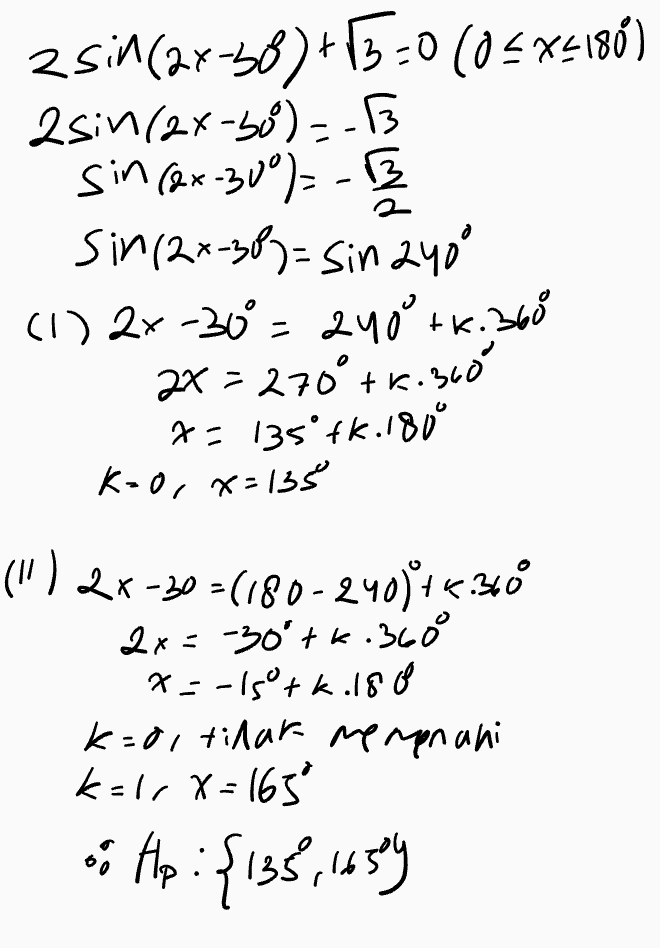 2 sin(2x-30°)+√3=0 (0≤x≤180°)
2sin(2x-30°)=-√3
sin(2x-30°)=-√3/2
Sin(2x-30°)=Sin 240°
(I) 2x-30° = 240°+k.360°
2x = 270°+k.360°
x = 135°+k.180°
k=0, x=135°
(II) 2x-30=(180-240)°+k.360°
2x = -30°+k.360°
x = -15°+k.180°
k=0, tidak memenuhi
k=1, x=165°
∴ Hp: {135°, 165°}